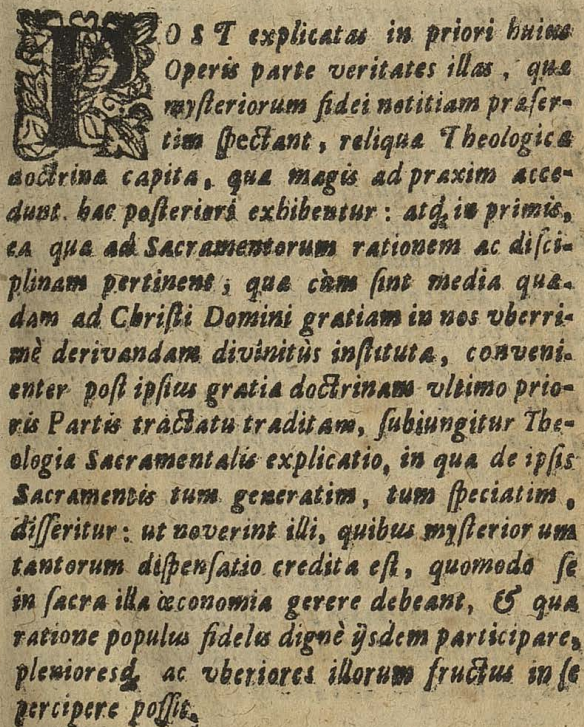 POST explicatas in priori huius
Operis parte veritates illas, quæ
mysteriorum fidei notitiam præser-
tim spectant, reliqua Theologicæ
doctrinæ capita, quæ magis ad praxim acce-
dunt. hac posteriori exhibentur: atq́; in primis,
ea quæ ad Sacramentorum rationem ac disci-
plinam pertinent; quæ cùm sint media quæ-
dam ad Christi Domini gratiam in nos vberri-
mè derivandam divinitùs instituta, conveni-
enter post ipsius gratiæ doctrinam vltimo prio-
ris Partis tractatu traditam, subiungitur The-
ologiæ Sacramentalis explicatio, in qua de ipsis
Sacramentis tum generatim, tum speciatim,
disseritur: ut noverint illi, quibus mysteriorum
tantorum dispensatio credita est, quomodo se
in sacra illa œconomia gerere debeant, & qua
ratione populus fidelis dignè ijsdem participare,
plenioresq́; ac vberiores illorum fructus in se
percipere possit.